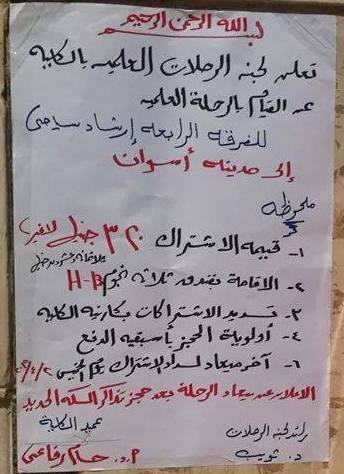 بسم الله الرحمن الرحيم
تعلن لجنة الرحلات العلمية بالكلية
عن القيام بالرحلة العلمية
للفرقة الرابعة إرشاد سياحى
إلى مدينة أسوان
ملحوظة
١- قيمة الاشتراك ٣٢٠ جنيه لاغير
ثلاثمائة وعشرون جنيه
٢- الاقامة بفندق ثلاثة نجوم H-B
٣- تسديد الاشتراكات بسكرتارية الكلية
٤- أولوية الحجز بأسبقية الدفع
٦- آخر ميعاد لسداد الاشتراك يوم الخميس
الاعلان عن ميعاد الرحلة بعد حجز تذاكر السكة الحديد
رائد لجنة الرحلات
عميد الكلية
د.
أ.د. حسام رفاعى